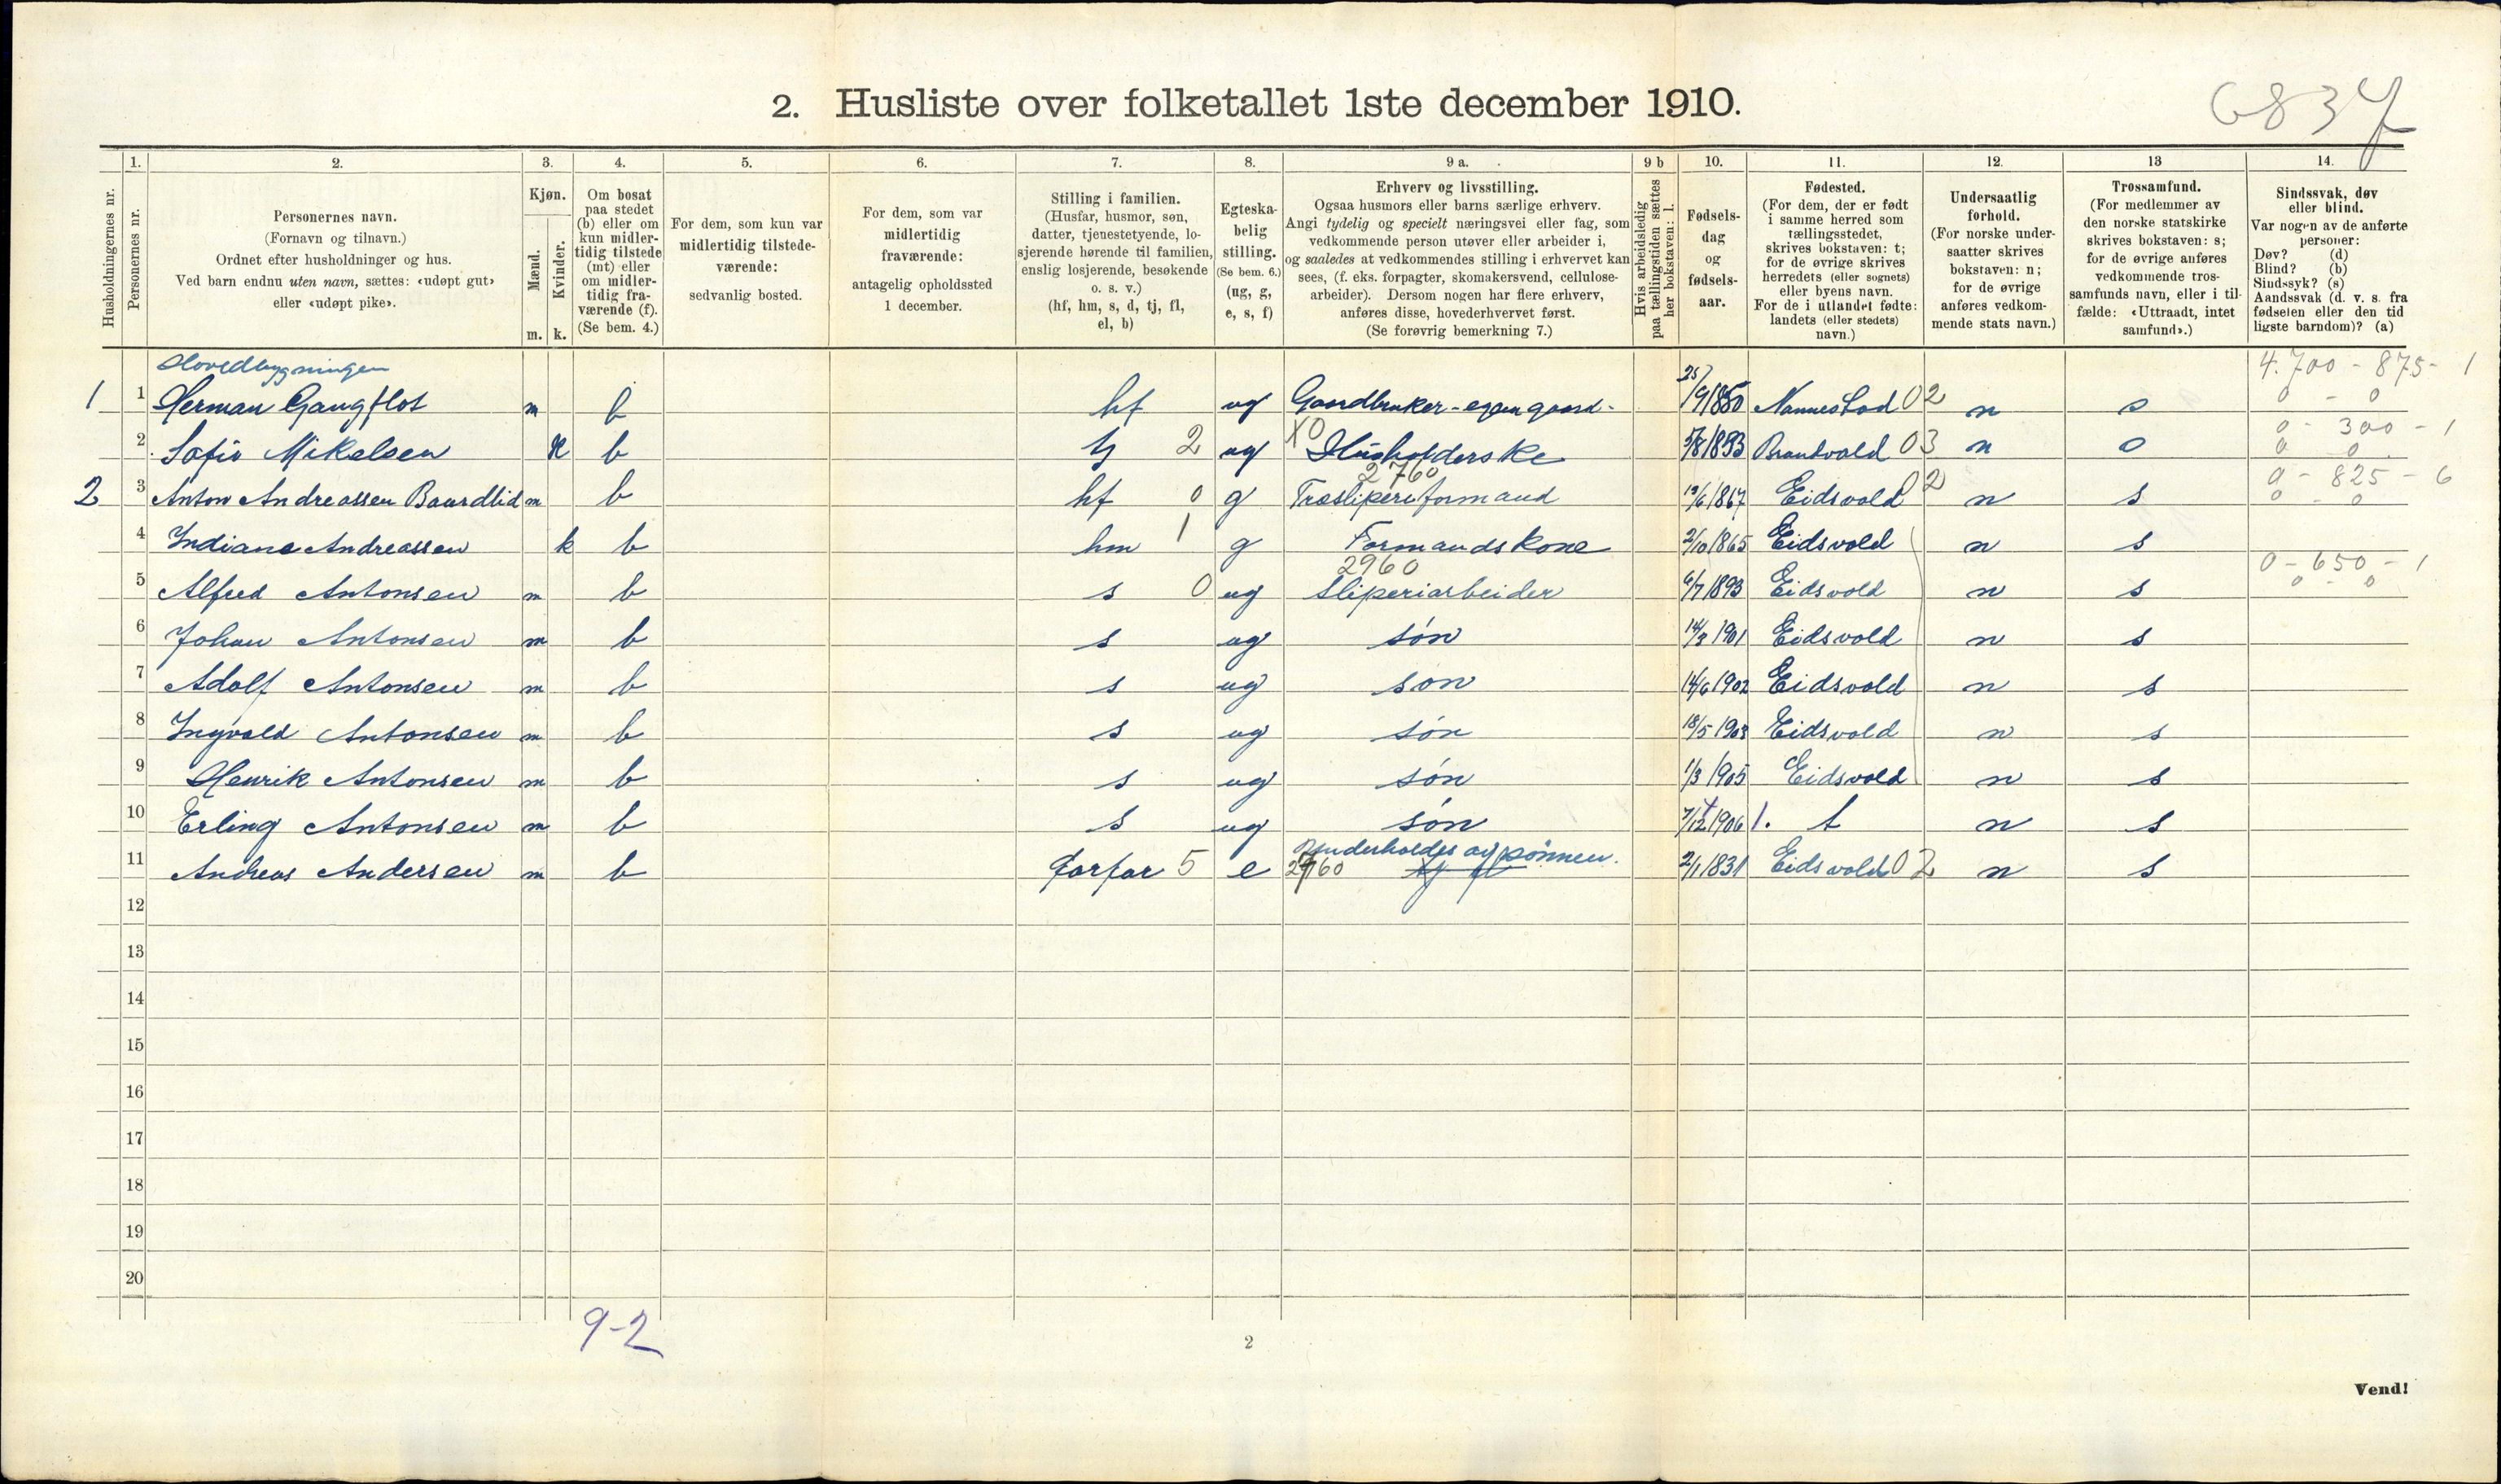 6837
2. Husliste over folketallet 1ste december 1910.
1. 2. 3. 4. 5. 6. 7. 8. 9 a. 9 b 10. 11. 12. 13 14.
Husholdningernes nr.
Personernes nr.
Personernes navn.
(Fornavn og tilnavn.)
Ordnet efter husholdninger og hus.
Ved barn endnu uten navn, sættes: «udøpt gut»
eller «udøpt pike».
Kjøn.
Mænd.
Kvinder.
m. k.
Om bosat
paa stedet
(b) eller om
kun midler-
tidig tilstede
(mt) eller
om midler-
tidig fra-
værende (f).
(Se bem. 4.)
For dem, som kun var
midlertidig tilstede-
værende:
sedvanlig bosted.
For dem, som var
midlertidig
fraværende:
antagelig opholdssted
1 december.
Stilling i familien.
(Husfar, husmor, søn,
datter, tjenestetyende, lo-
sjerende hørende til familien,
enslig losjerende, besøkende
o. s. v.)
(hf, hm, s, d, tj, fl,
el, b)
Egteska-
belig
stilling.
(Se bem. 6.)
(ug, g,
e, s, f)
Erhverv og livsstilling.
Ogsaa husmors eller barns særlige erhverv.
Angi tydelig og specielt næringsvei eller fag, som
vedkommende person utøver eller arbeider i,
og saaledes at vedkommendes stilling i erhvervet kan
sees, (f. eks. forpagter, skomakersvend, cellulose-
arbeider). Dersom nogen har flere erhverv,
anføres disse, hovederhvervet først.
(Se forøvrig bemerkning 7.)
Hvis arbeidsledig
paa tællingstiden sættes
her bokstaven: l.
Fødsels-
dag
og
fødsels-
aar.
Fødested.
(For dem, der er født
i samme herred som
tællingsstedet,
skrives bokstaven: t;
for de øvrige skrives
herredets (eller sognets)
eller byens navn.
For de i utlandet fødte:
landets (eller stedets)
navn.)
Undersaatlig
forhold.
(For norske under-
saatter skrives
bokstaven: n;
for de øvrige
anføres vedkom-
mende stats navn.)
Trossamfund.
(For medlemmer av
den norske statskirke
skrives bokstaven: s;
for de øvrige anføres
vedkommende tros-
samfunds navn, eller i til-
fælde: «Uttraadt, intet
samfund».)
Sindssvak, døv
eller blind.
Var nogen av de anførte
personer:
Døv? (d)
Blind? (b)
Sindssyk? (s)
Aandssvak (d. v. s. fra
fødselen eller den tid
ligste barndom)? (a)
Hovedbygningen 4.700 - 875 - 1
1 1 Herman Gangflot m b hf ug Gaardbruker - egen gaard - 25/9 1850 Nannestad 02 n s 0 - 0
X0 0 - 300 - 1
2 Sofie Mikelsen k b tj 2 ug Husholderske 5/8 1893 Brandvold 03 n s 0 0
2760 0 - 825 - 6
2 3 Anton Andreassen Baardlid m b hf 0 g Træsliperiformand 13/6 1867 Eidsvold 02 n s 0 - 0
4 Indiane Andreassen k b hm 1 g Formandskone 2/10 1865 Eidsvold n s
2960 0 - 650 - 1
5 Alfred Antonsen m b s 0 ug Sliperiarbeider 6/7 1893 Eidsvold n s 0 - 0
6 Johan Antonsen m b s ug søn 14/3 1901 Eidsvold n s
7 Adolf Antonsen m b s ug søn 14/6 1902 Eidsvold n s
8 Ingvald Antonsen m b s ug søn 18/5 1903 Eidsvold n s
9 Henrik Antonsen m b s ug søn 1/3 1905 Eidsvold n s
10 Erling Antonsen m b s ug søn 7/12 1906 1. t n s
underholdes av sønnen.
11 Andreas Andersen m b farfar 5 e 2760 2/1 1831 Eidsvold 02 n s
12
13
14
15
16
17
18
19
20
9-2
2
Vend!